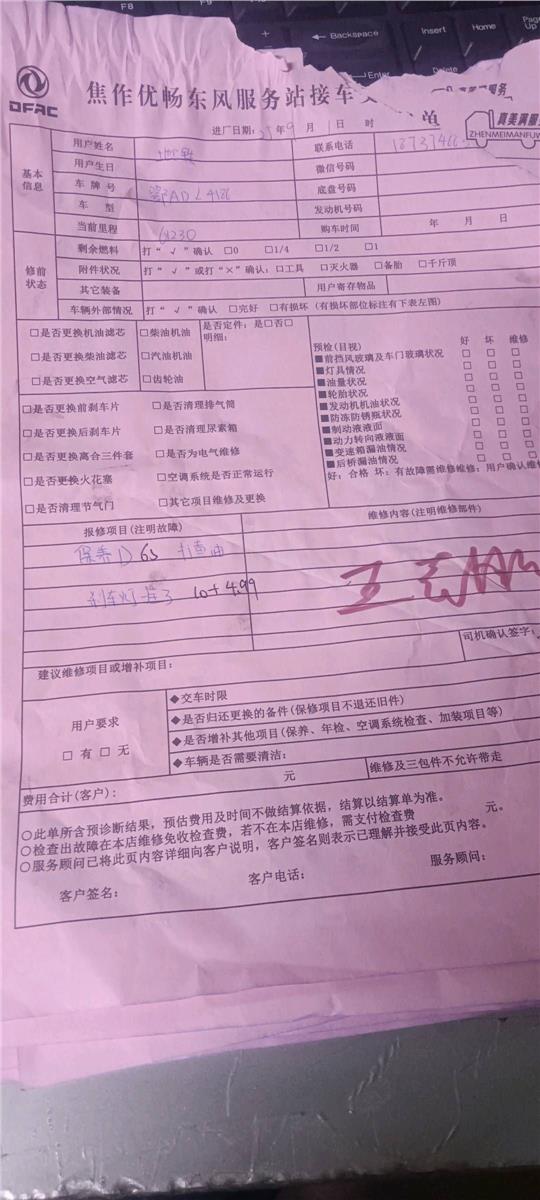 F8
F9
Backspace
Insert
Home
Page
Up
Enter
Delete
DFAC
焦作优畅东风服务站接车
单
真美满服务
ZHENMEIMANFUW
进厂日期：25年9月1日 时
基本
信息
用户姓名
联系电话
用户生日
微信号码
车 牌 号
底盘号码
车 型
发动机号码
当前里程
购车时间 年 月 日
修前
状态
剩余燃料 打“√”确认 □0 □1/4 □1/2 □1
附件状况 打“√”或打“×”确认：□工具 □灭火器 □备胎 □千斤顶
其它装备 用户寄存物品
车辆外部情况 打“√”确认 □完好 □有损坏（有损坏部位标注有下表左图）
□是否更换机油滤芯 □柴油机油 是否定件：是□否□
明细：
□是否更换柴油滤芯 □汽油机油
□是否更换空气滤芯 □齿轮油
预检(目视) 好 坏 维修
■前挡风玻璃及车门玻璃状况 □ □ □
■灯具情况 □ □ □
■油量状况 □ □ □
■轮胎状况 □ □ □
■发动机机油状况 □ □ □
■防冻防锈瓶状况 □ □ □
■制动液液面 □ □ □
■动力转向液液面 □ □ □
■变速箱漏油情况 □ □ □
■后桥漏油情况 □ □ □
好：合格 坏：有故障需维修维修：用户确认维修
□是否更换前刹车片 □是否清理排气筒
□是否更换后刹车片 □是否清理尿素箱
□是否更换离合三件套 □是否为电气维修
□是否更换火花塞 □空调系统是否正常运行
□是否清理节气门 □其它项目维修及更换
报修项目(注明故障) 维修内容(注明维修部件)
保养D 6S
刹车灯
司机确认签字：
建议维修项目或增补项目：
用户要求
□ 有 □ 无
◆交车时限
◆是否归还更换的备件(保修项目不退还旧件)
◆是否增补其他项目(保养、年检、空调系统检查、加装项目等)
◆车辆是否需要清洁：
费用合计(客户)： 元 维修及三包件不允许带走
○此单所含预诊断结果，预估费用及时间不做结算依据，结算以结算单为准。
○检查出故障在本店维修免收检查费，若不在本店维修，需支付检查费 元。
○服务顾问已将此页内容详细向客户说明，客户签名则表示已理解并接受此页内容。
客户签名： 客户电话： 服务顾问：